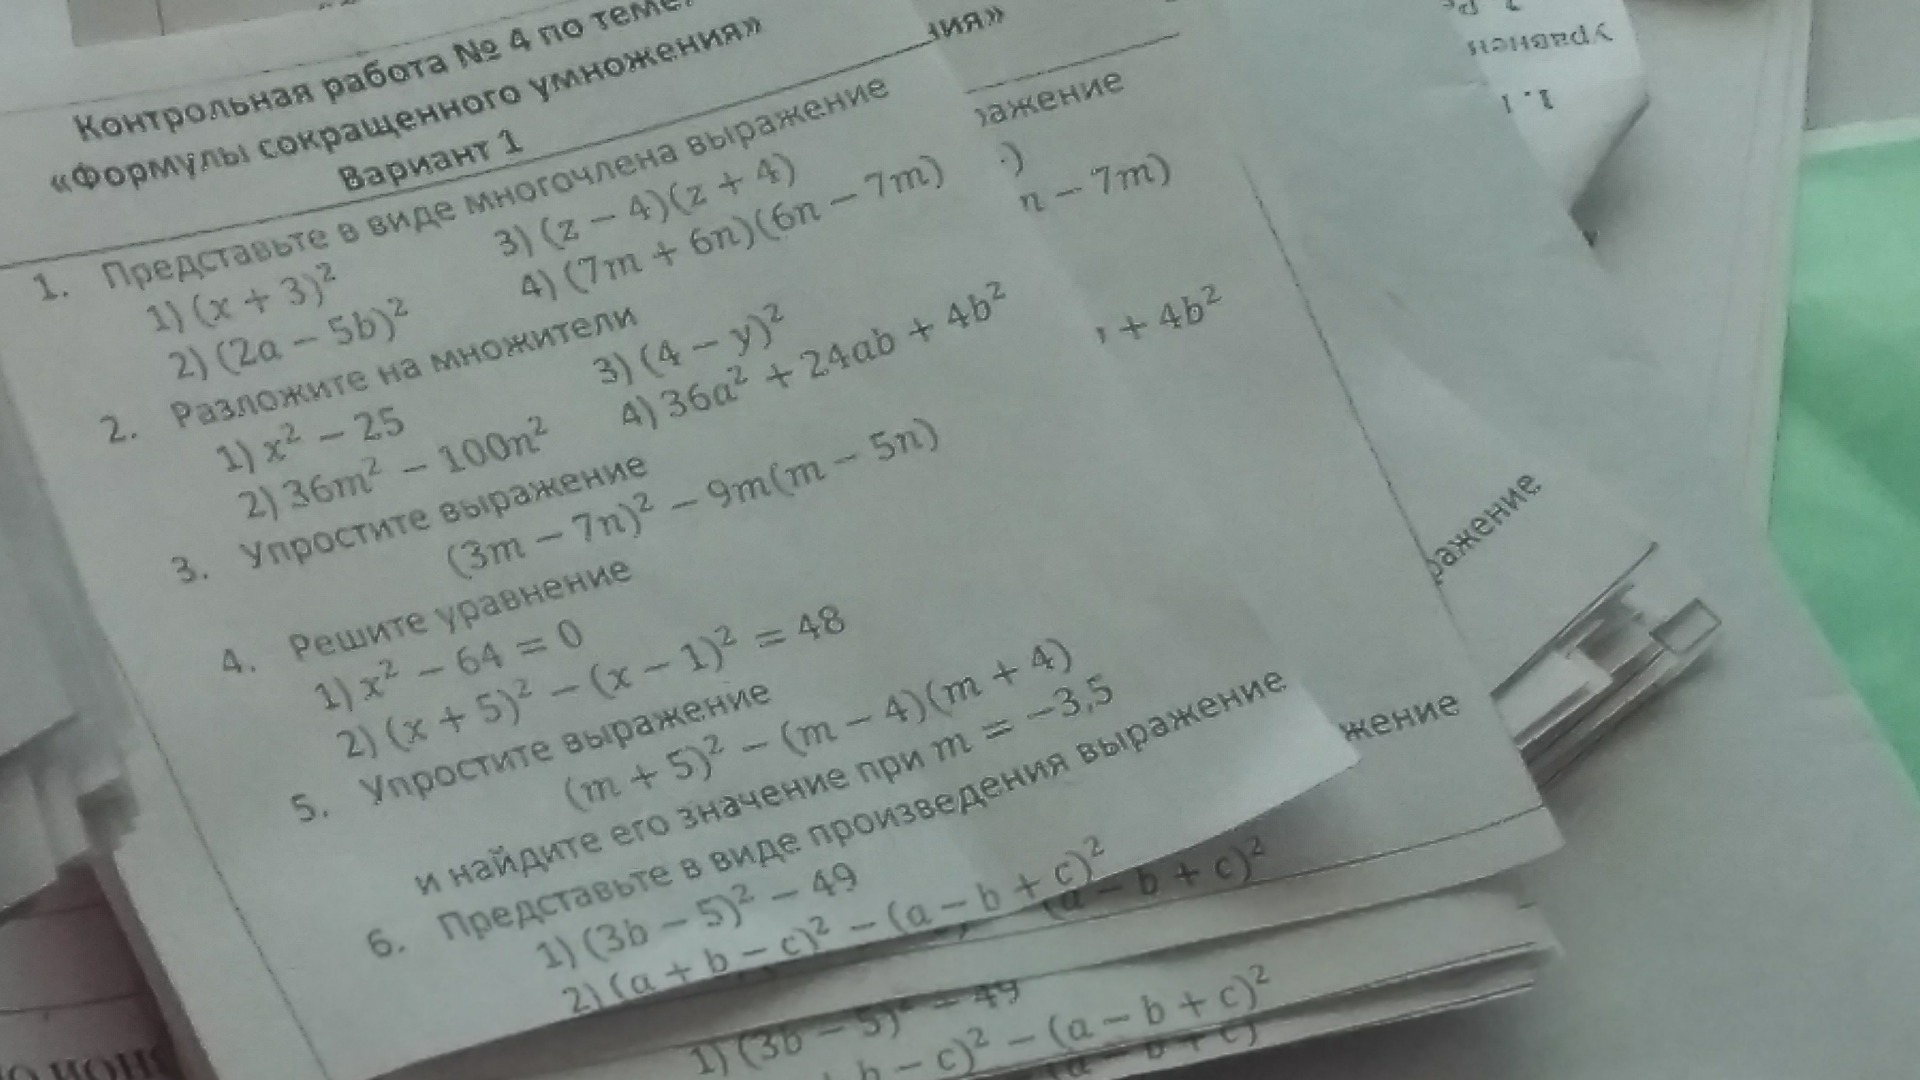 Контрольная работа № 4 по теме:
«Формулы сокращенного умножения»
Вариант 1
1. Представьте в виде многочлена выражение
1) (x + 3)²
3) (z − 4)(z + 4)
2) (2a − 5b)²
4) (7m + 6n)(6n − 7m)
2. Разложите на множители
1) x² − 25
3) (4 − y)²
2) 36m² − 100n²
4) 36a² + 24ab + 4b²
3. Упростите выражение
(3m − 7n)² − 9m(m − 5n)
4. Решите уравнение
1) x² − 64 = 0
2) (x + 5)² − (x − 1)² = 48
5. Упростите выражение
(m + 5)² − (m − 4)(m + 4)
и найдите его значение при m = −3,5
6. Представьте в виде произведения выражение
1) (3b − 5)² − 49
2) (a + b − c)² − (a − b + c)²
ния»
ражение
)
n − 7m)
+ 4b²
жение
(a − b + c)²
1) (3b − 5)² − 49
b − c)² − (a − b + c)²
(a − b + c)
ражение
уравнен
1. 1